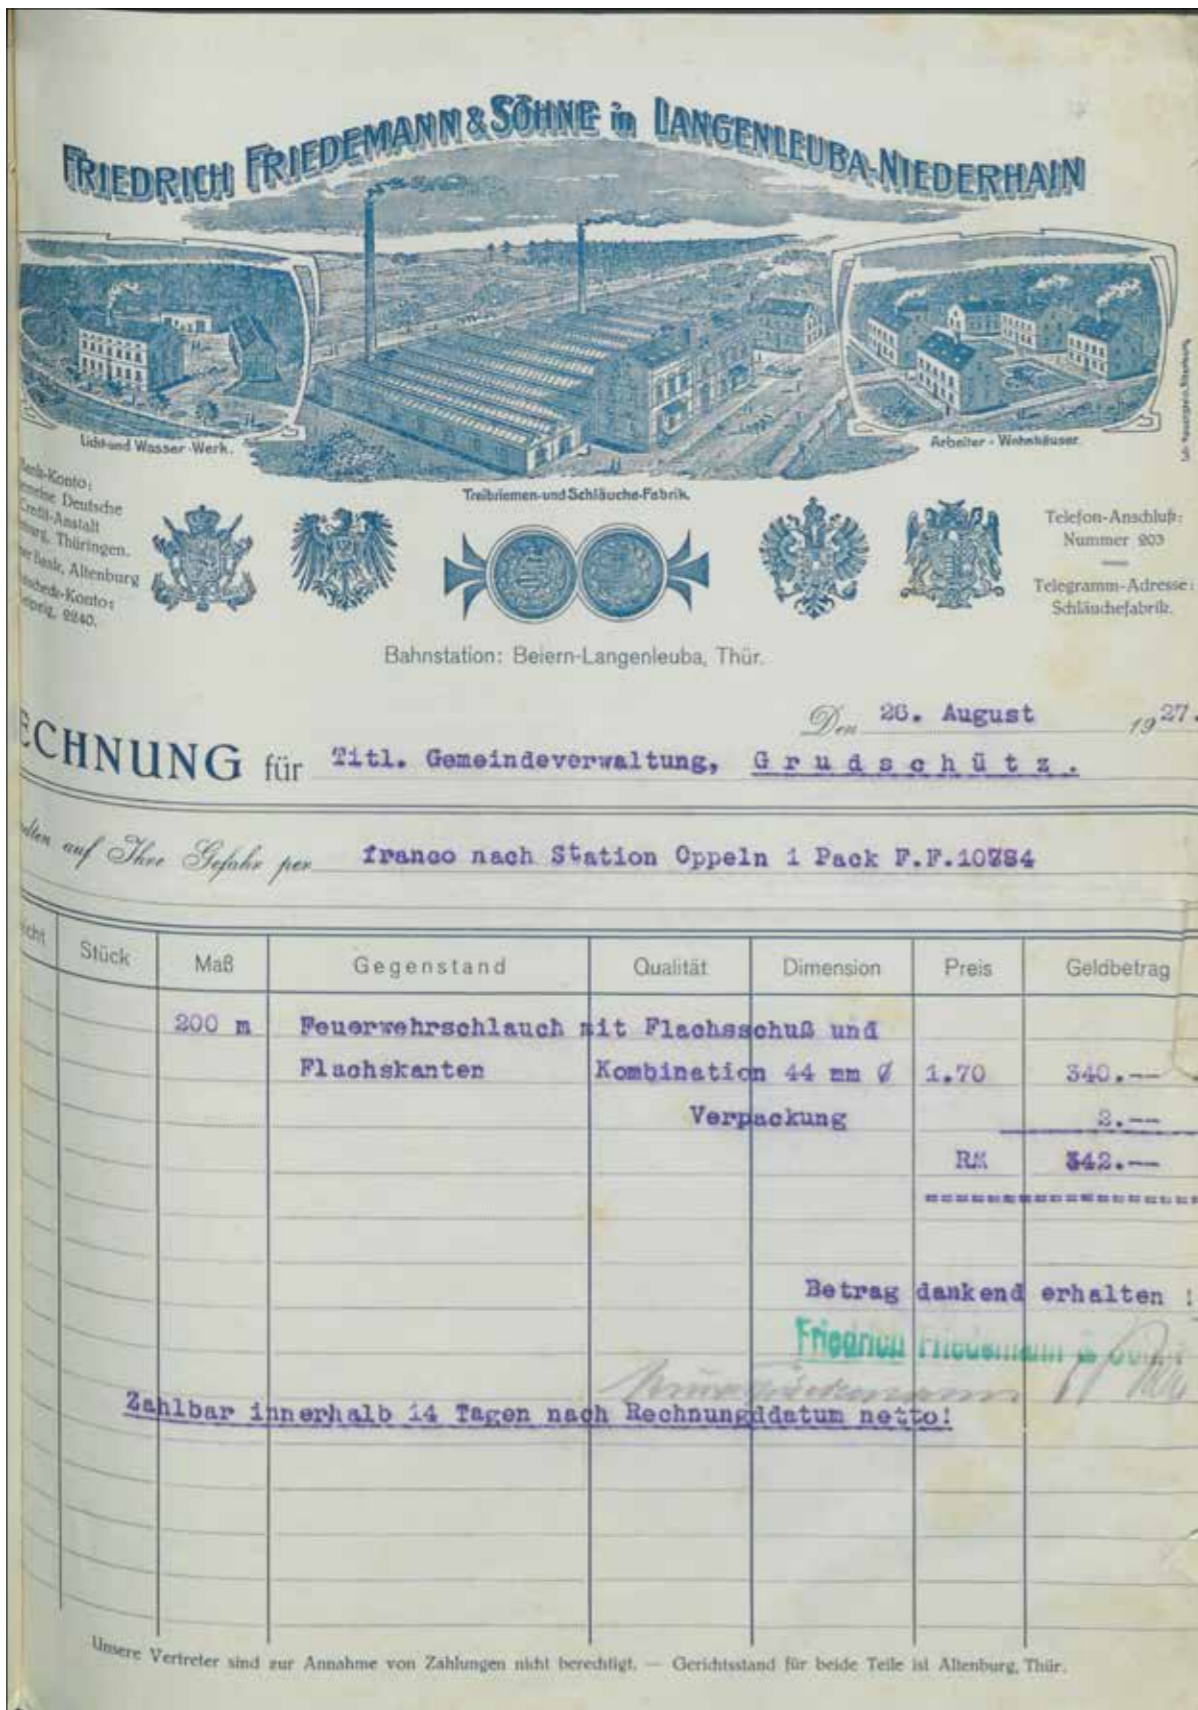 FRIEDRICH FRIEDEMANN & SÖHNE in LANGENLEUBA-NIEDERHAIN
Licht-und Wasser-Werk.
Arbeiter-Wohnhäuser.
Treibriemen-und Schläuche-Fabrik.
Bank-Konto:
Deutsche
Credit-Anstalt
Thüringen.
Bank, Altenburg
Konto:
2240.
Telefon-Anschluß:
Nummer 203
Telegramm-Adresse:
Schläuchefabrik.
Bahnstation: Beiern-Langenleuba, Thür.
Den 26. August 1927.
ECHNUNG für Titl. Gemeindeverwaltung, Grudschütz.
auf Ihre Gefahr per franco nach Station Oppeln 1 Pack F.F.10784
icht Stück Maß Gegenstand Qualität Dimension Preis Geldbetrag
200 m Feuerwehrschlauch mit Flachsschuß und
Flachskanten Kombination 44 mm Ø 1.70 340.--
Verpackung 2.--
RM 342.--
Betrag dankend erhalten !
Friedrich Friedemann &
Zahlbar innerhalb 14 Tagen nach Rechnungddatum netto!
Unsere Vertreter sind zur Annahme von Zahlungen nicht berechtigt. — Gerichtsstand für beide Teile ist Altenburg, Thür.